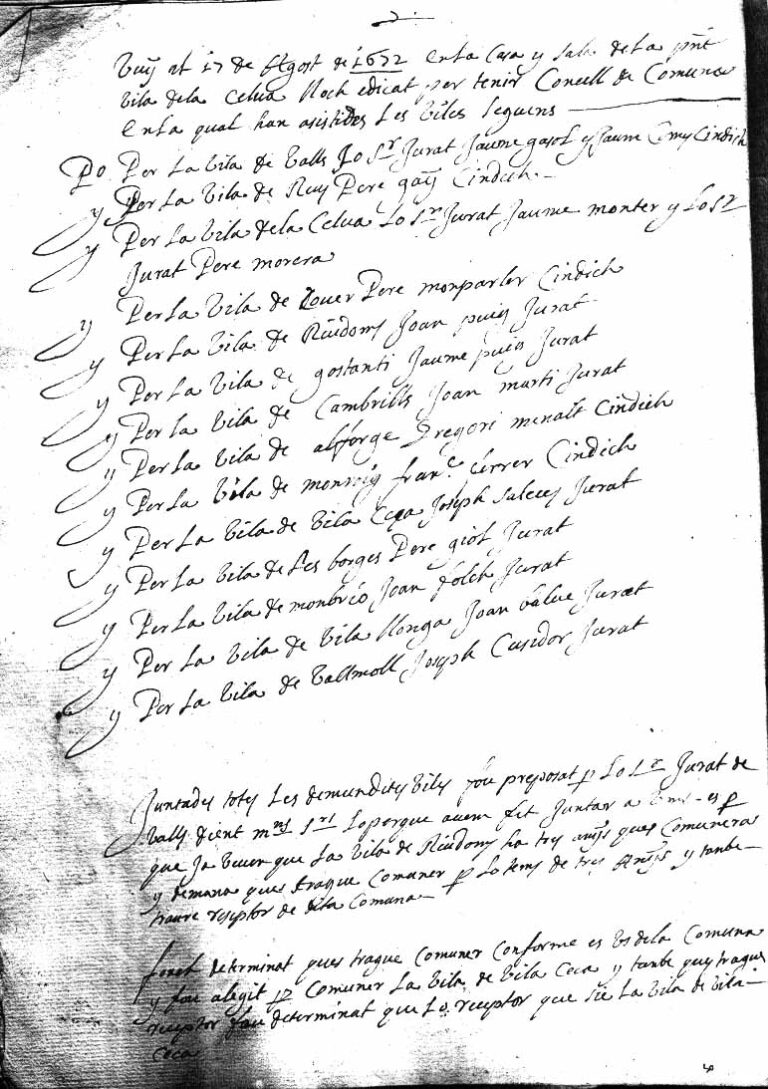 Vuy al 17 de Agost de 1672 en la Casa y Sala de la pnt
Vila dela Celva Noch edicat per tenir Concell de Comuna
en la qual han asistides les Viles seguens
Po Per La Vila de Valls Lo Sr Jurat Jaume gasol y Jaume Comy Cindich
y Per La Vila de Reuy Pere gay Cindich.
y Per La Vila dela Celva Lo Sr Jurat Jaume monter y Lo Sr
Jurat Pere morera
y Per La Vila de Lover Pere monparler Cindich
y Per La Vila de Riudoms Joan puig Jurat
y Per La Vila de gostanti Jaume puig Jurat
y Per La Vila de Cambrills Joan marti Jurat
y Per La Vila de alforge Gregori menalt Cindich
y Per La Vila de monroig franc. ferrer Cindich
y Per La Vila de Vila Ceca Joseph Salces Jurat
y Per La Vila de Les borges Pere giol Jurat
y Per La Vila de monbrio Joan folch Jurat
y Per La Vila de Vila llonga Joan Valve Jurat
y Per La Vila de Vallmoll Joseph Cusidor Jurat
Juntades totes Les demundites Viles fou preposat p Lo Sr Jurat de
Valls dient mns Srs Loperque avem fet Juntar a Vms es p
que Ja veuen que La Vila de Riudoms ha tres anys ques Comunera
y demana ques trague Comuner p Lo tems de tres Anys y tanbe
traure reseptor de dita Comuna
fonch determinat ques trague Comuner Conforme es Us dela Comuna
y fou alegit p Comuner La Vila de Vila Ceca y tanbe ques trague
receptor fou determinat que Lo receptor que sie La Vila de Vila
Ceca